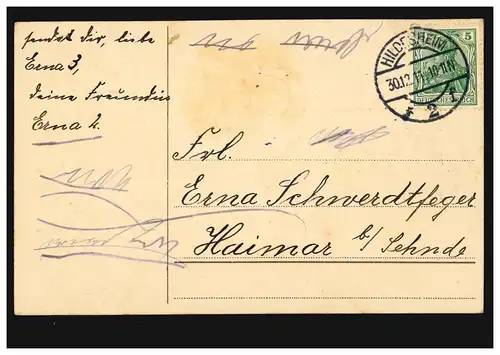 sendet dir, liebe
Erna 3,
deine Freundin
Erna 2.
HILDESHEIM
5
30.12.11.10-11N.
* 2 f
Frl.
Erna Schwerdtfeger
Haimar b/ Sehnde